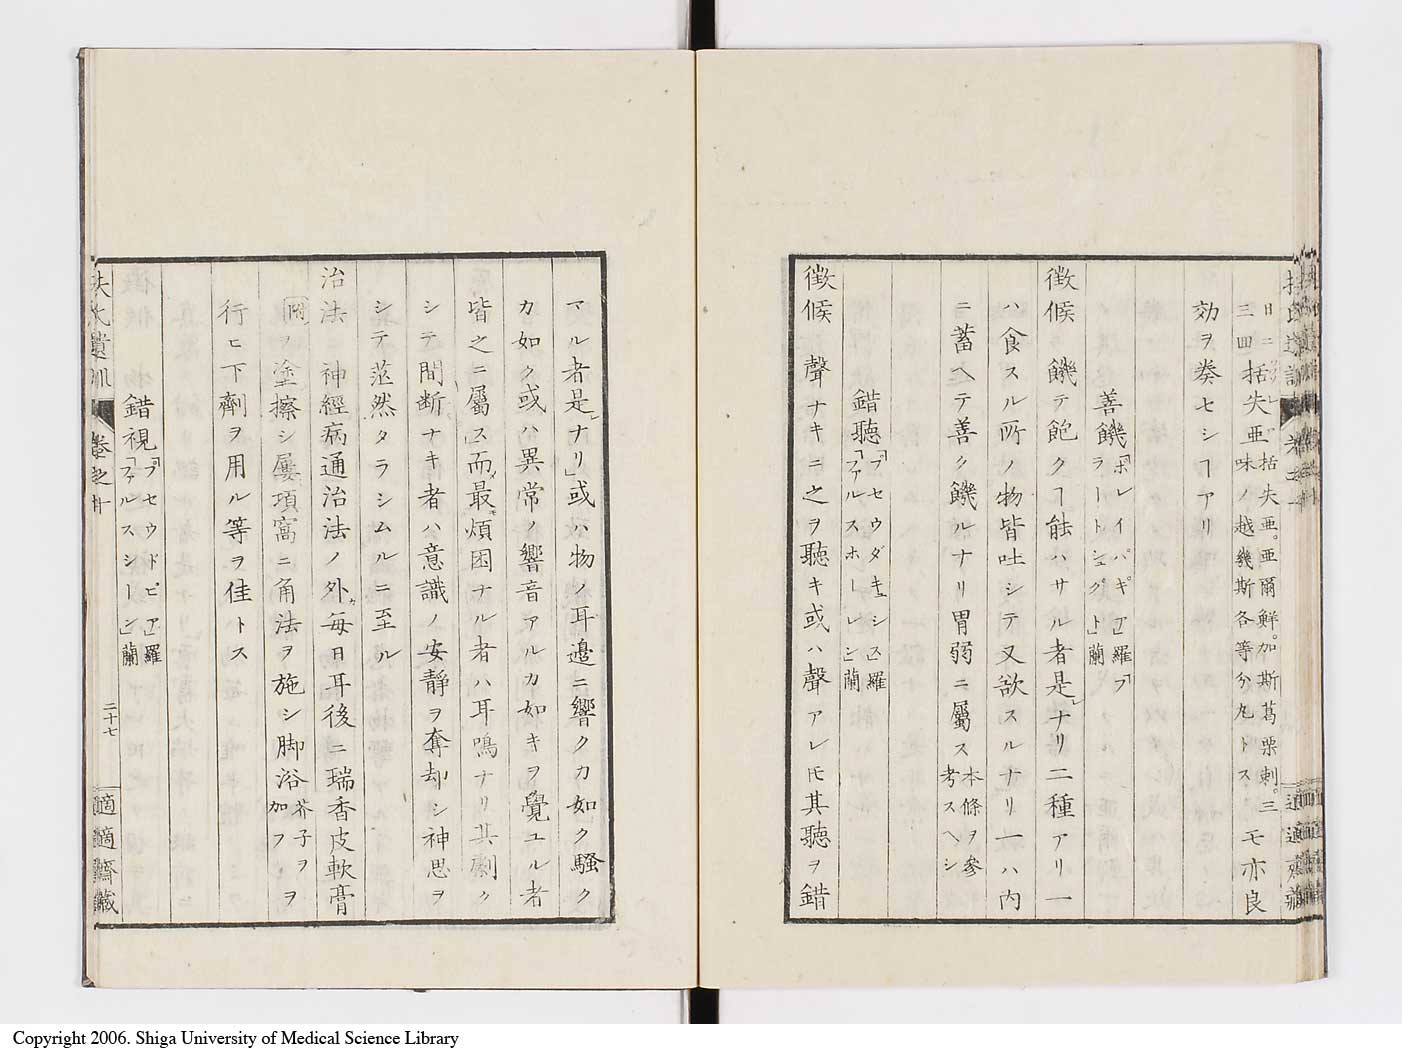 日ニ括失亜。括失亜。亜爾鮮。加斯葛栗刺。三
三四括失亜味ノ越幾斯各等分丸トス
モ亦良
効ヲ奏セシヿアリ
善饑「ボレイパギア」羅「フ
ラートシュクト」蘭
徴候 饑テ飽クヿ能ハサル者是レナリ二種アリ一
ハ食スル所ノ物皆吐シテ又欲スルナリ一ハ内
ニ蓄ヘテ善ク饑ルナリ胃弱ニ屬ス
本條ヲ參
考スヘシ
錯聽「プセウダキュシス」羅
「ファルスホーレン」蘭
徴候 聲ナキニ之ヲ聽キ或ハ聲アレ𪜈其聽ヲ錯
アル者是レナリ」或ハ物ノ耳邉ニ響クカ如ク騒ク
カ如ク或ハ異常ノ響音アルカ如キヲ覺ユル者
皆之ニ屬ス」而メ最モ煩困ナル者ハ耳鳴ナリ其劇ク
シテ間断ナキ者ハ意識ノ安靜ヲ奪却シ神思ヲ
シテ茫然タラシムルニ至ル
治法 神經病通治法ノ外カ毎日耳後ニ瑞香皮軟膏
附ヲ塗擦シ屢項窩ニ角法ヲ施シ脚浴
芥子ヲ
加フ
ヲ
行ヒ下劑ヲ用ル等ヲ佳トス
錯視「プセウドピア」羅
「ファルスシーン」蘭
扶氏遺訓 巻之十 二十七 適適齋藏